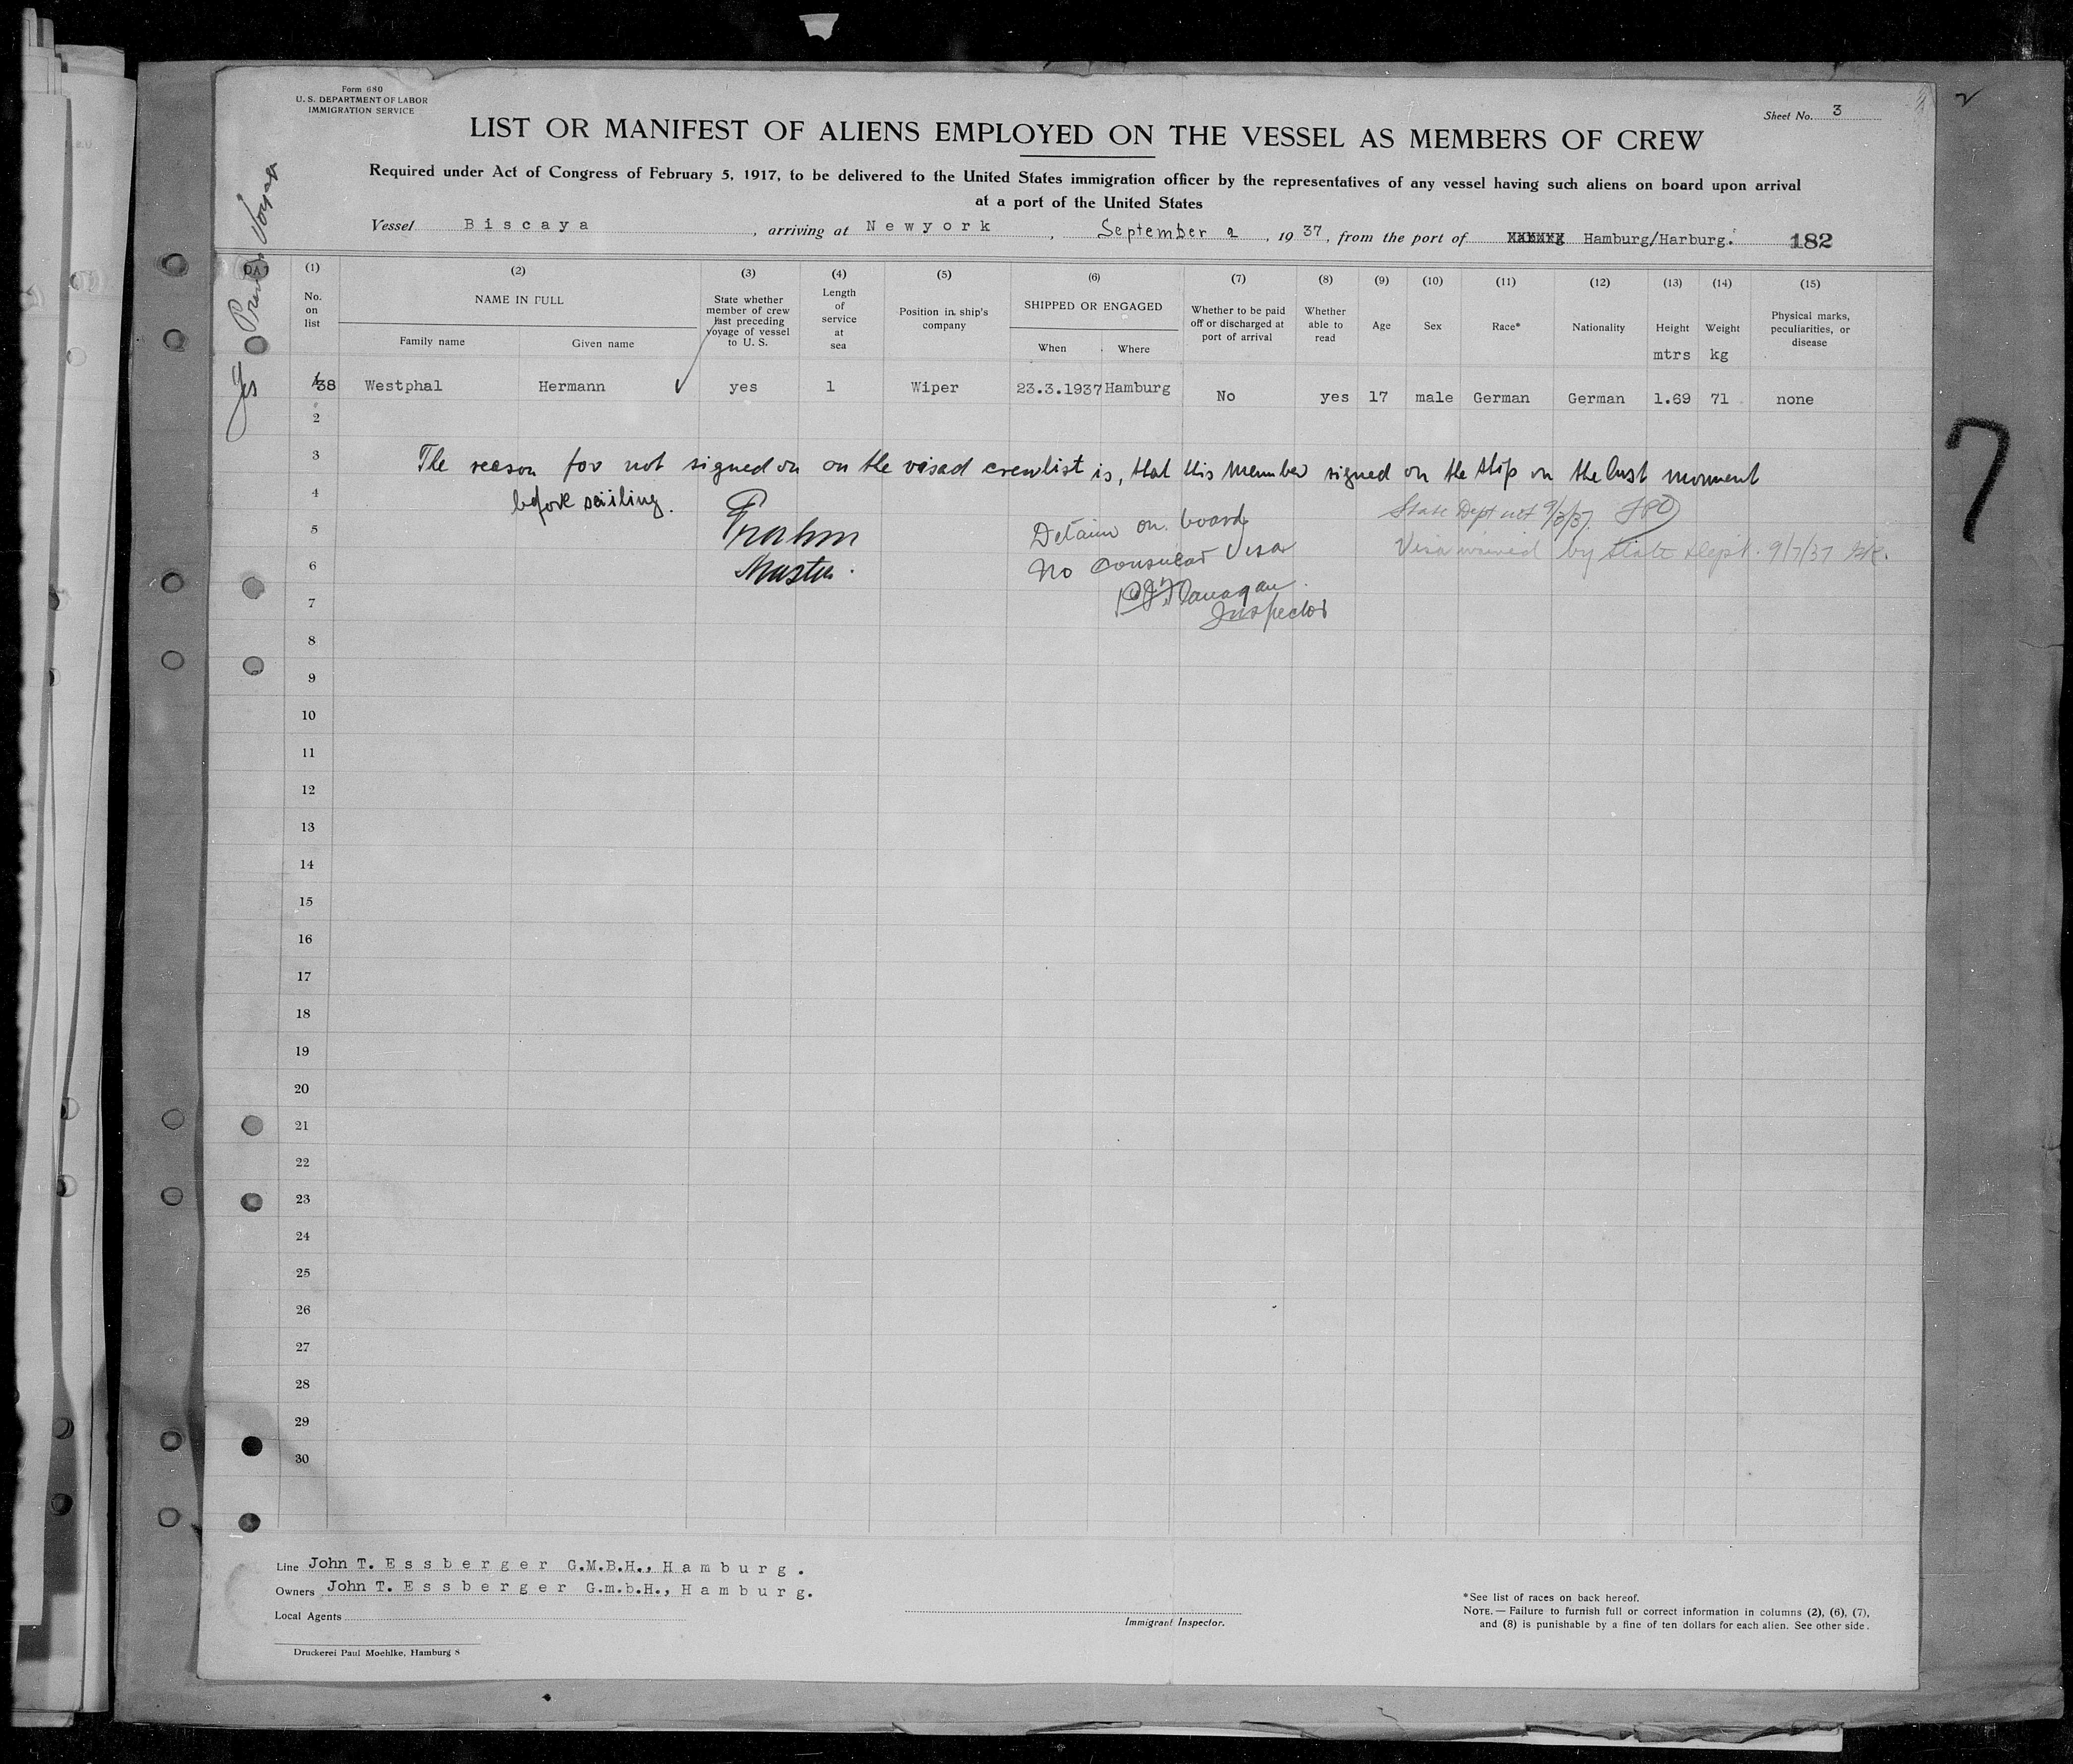 Form 680
U. S. DEPARTMENT OF LABOR
IMMIGRATION SERVICE
Sheet No. 3
LIST OR MANIFEST OF ALIENS EMPLOYED ON THE VESSEL AS MEMBERS OF CREW
Required under Act of Congress of February 5, 1917, to be delivered to the United States immigration officer by the representatives of any vessel having such aliens on board upon arrival
at a port of the United States
Vessel Biscaya, arriving at Newyork, September 2, 1937, from the port of Hamburg/Harburg. 182
Yes Voyage
(1) No. on list
(2) NAME IN FULL Family name Given name
(3) State whether member of crew last preceding voyage of vessel to U. S.
(4) Length of service at sea
(5) Position in ship's company
(6) SHIPPED OR ENGAGED When Where
(7) Whether to be paid off or discharged at port of arrival
(8) Whether able to read
(9) Age
(10) Sex
(11) Race*
(12) Nationality
(13) Height mtrs
(14) Weight kg
(15) Physical marks, peculiarities, or disease
38 Westphal Hermann yes 1 Wiper 23.3.1937 Hamburg No yes 17 male German German 1.69 71 none
2
3 The reason for not signed on on the visad crewlist is, that this member signed on the ship on the last moment
4 before sailing.
State Dept not 9/3/37.
5 Frahm Detain on board
Visa waived by State Dept. 9/7/37
6 Master. No Consular Visa
7 Flanagan
Inspector
8
9
10
11
12
13
14
15
16
17
18
19
20
21
22
23
24
25
26
27
28
29
30
7
Line John T. Essberger G.M.B.H., Hamburg.
Owners John T. Essberger G.m.b.H., Hamburg.
Local Agents
Immigrant Inspector.
*See list of races on back hereof.
NOTE.— Failure to furnish full or correct information in columns (2), (6), (7),
and (8) is punishable by a fine of ten dollars for each alien. See other side.
Druckerei Paul Moehlke, Hamburg 8